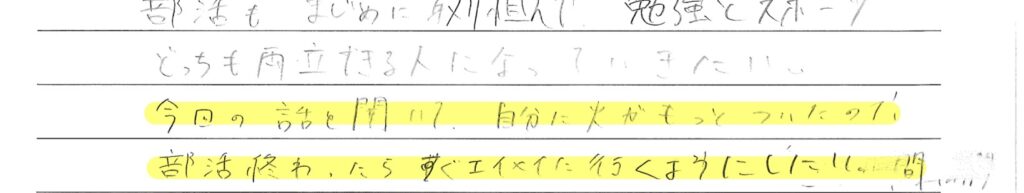 部活も まじめに取り組んで 勉強とスポーツ
どっちも両立できる人になっていきたい。
今回の話を聞いて、自分に火がもっとついたので
部活終わったらすぐエイメイに行くようにしたい。